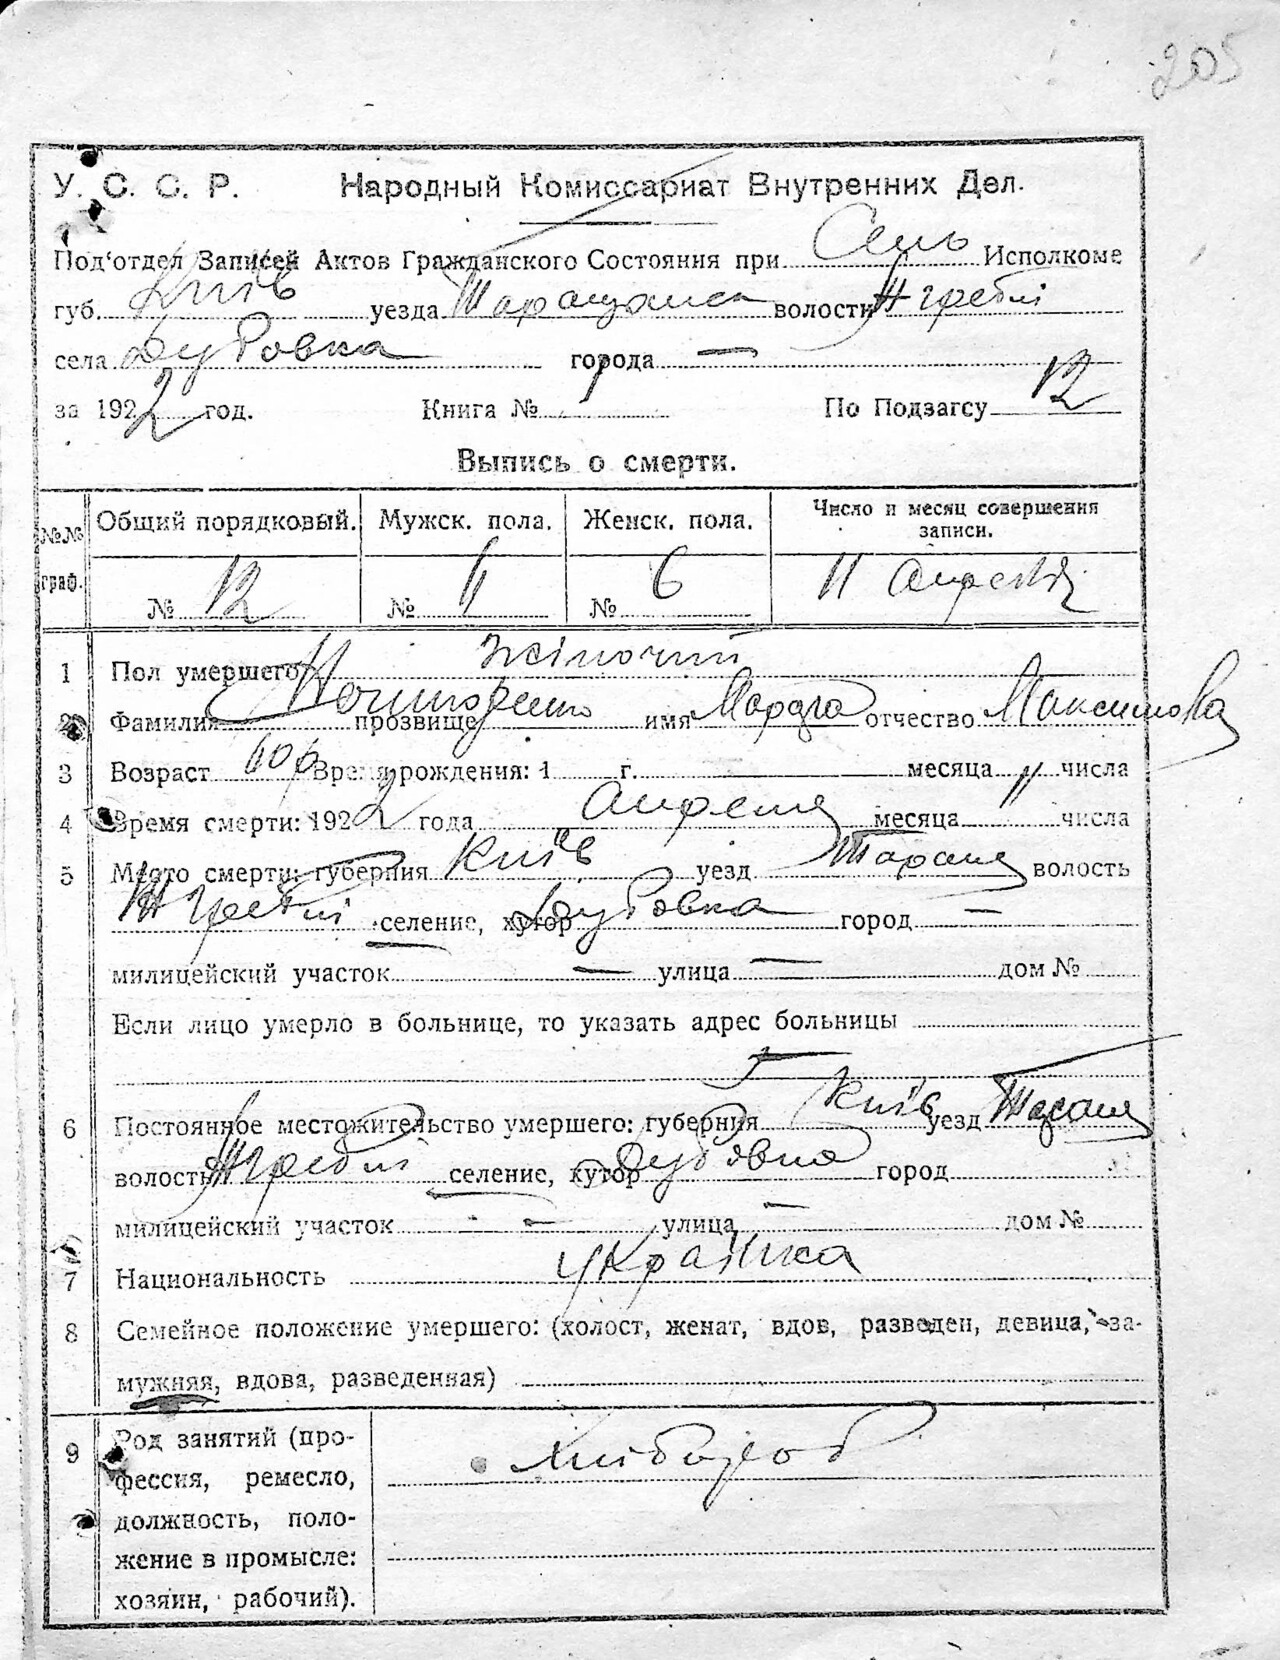 205
У. С. С. Р. Народный Комиссариат Внутренних Дел.
Под'отдел Записей Актов Гражданского Состояния при Сель Исполкоме
губ. Київ уезда Таращанск волости
села Дубовка города —
за 1922 год. Книга № По Подзагсу 12
Выпись о смерти.
№№ граф. Общий порядковый. Мужск. пола. Женск. пола. Число и месяц совершения записи.
№ 12 № № 6 11 Апреля
1 Пол умершего жіночий
2 Фамилия прозвище имя отчество Максимова
3 Возраст Время рождения: 1 г. месяца числа
4 Время смерти: 1922 года Апреля месяца числа
5 Место смерти: губерния Київ уезд Таращ волость
селение, хутор Дубовка город —
милицейский участок — улица — дом №
Если лицо умерло в больнице, то указать адрес больницы
6 Постоянное местожительство умершего: губерния Київ уезд Таращ
волость селение, хутор Дубовка город
милицейский участок — улица — дом №
7 Национальность Українка
8 Семейное положение умершего: (холост, женат, вдов, разведен, девица, за-
мужняя, вдова, разведенная)
9 Род занятий (про-
фессия, ремесло,
должность, поло-
жение в промысле:
хозяин, рабочий).
Хлібороб